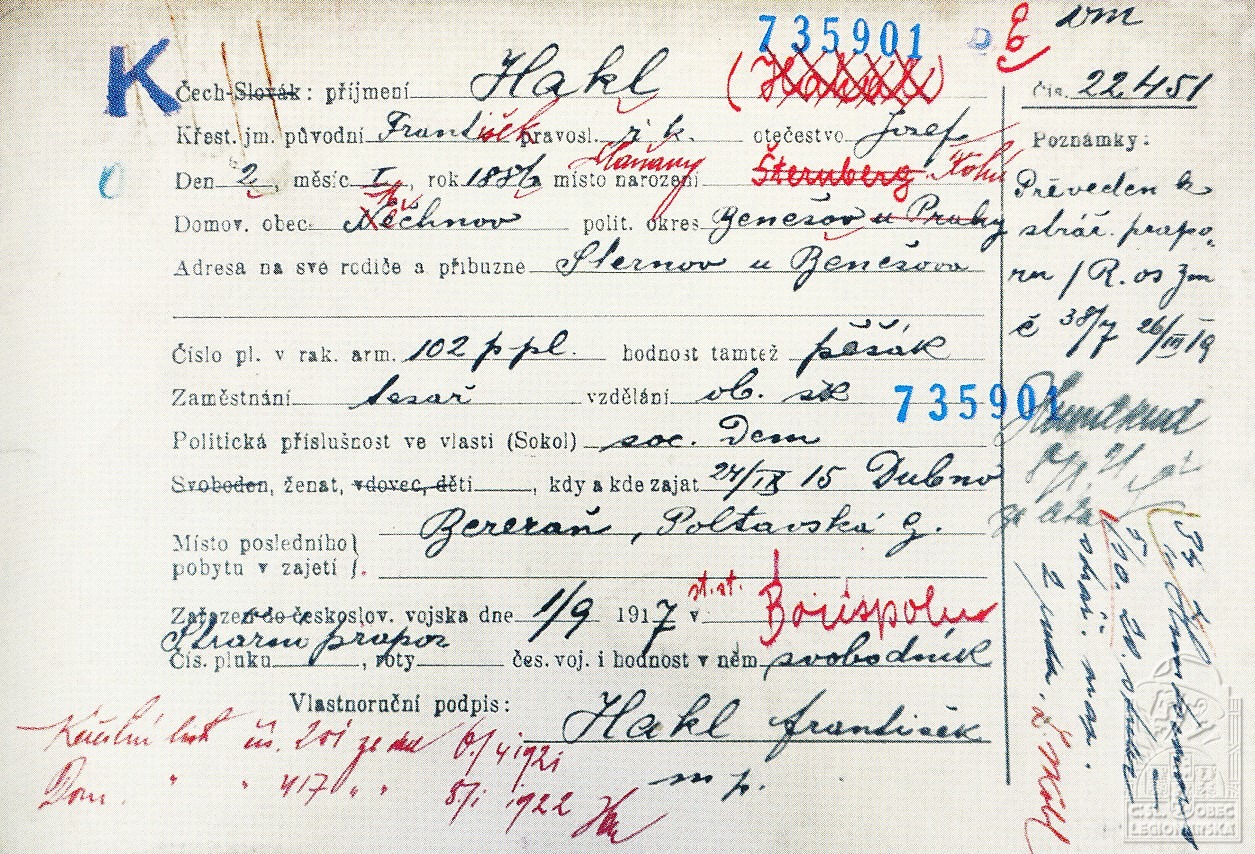 735901 vm
K Čech-Slovák: příjmení Hakl
Čís. 22.451
Křest. jm. původní František pravosl. ř. k. otečestvo Jozef
Poznámky:
Den 2, měsíc I, rok 188 místo narození Šternberg
Domov. obec Něchnov polit. okres Benešov u Prahy
Adresa na své rodiče a příbuzné Šternov u Benešova
Převeden k
stráž. prapo-
ru
č 38/7 26/III 19
Číslo pl. v rak. arm. 102 p. pl. hodnost tamtéž pěšák
Zaměstnání tesař vzdělání ob. šk
735901
Politická příslušnost ve vlasti (Sokol) soc. Dem
Svoboden, ženat, vdovec, děti, kdy a kde zajat 24/IX 15 Dubno
Místo posledního pobytu v zajetí Berezaň, Poltavská g.
Zařazen do českoslov. vojska dne 1/9 1917 v st. st. Borispolu
Strážní prapor
Čís. pluku, roty čes. voj. i hodnost v něm svobodník
Vlastnoruční podpis:
Hakl František
m p.
Křestní list čís. 201 ze dne 6./4 1921
Dom. " " 417 " " 5./I 1922
ČS. OBEC
LEGIONÁŘSKÁ